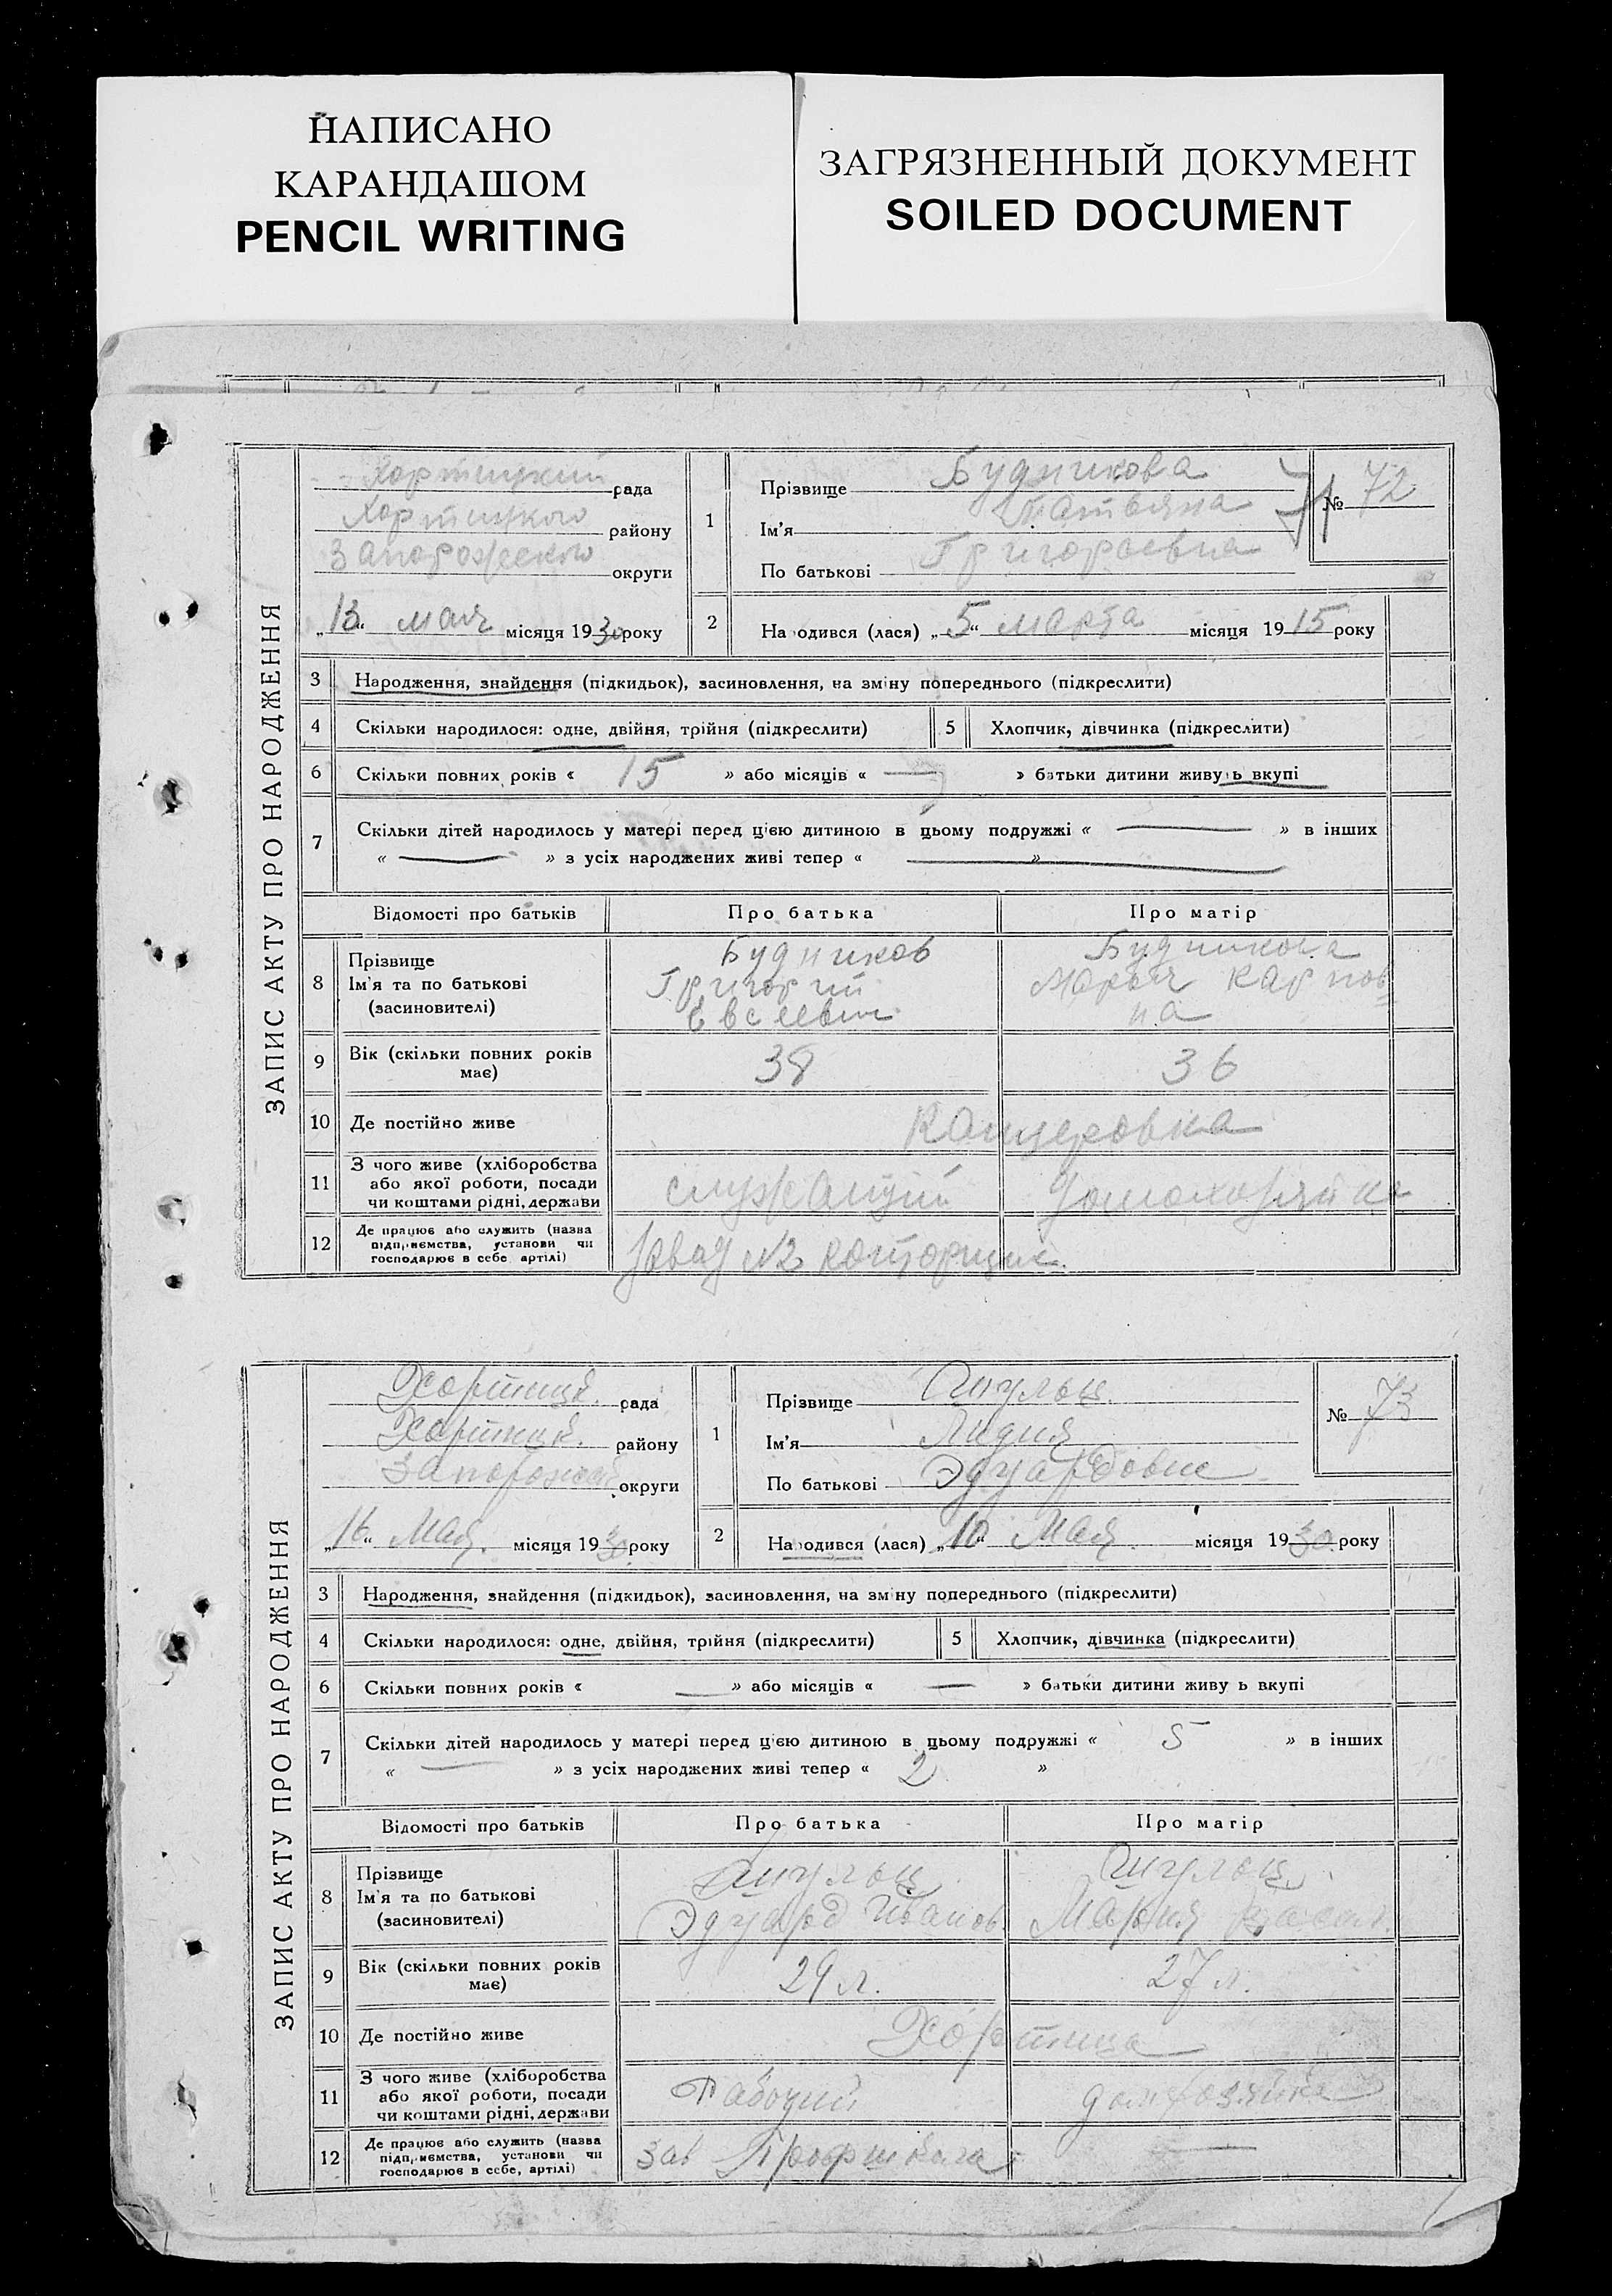 НАПИСАНО
КАРАНДАШОМ
PENCIL WRITING
ЗАГРЯЗНЕННЫЙ ДОКУМЕНТ
SOILED DOCUMENT
ЗАПИС АКТУ ПРО НАРОДЖЕННЯ
Хортицкий рада
Хортицкого району
Запорожского округи
„13“ мая місяця 1930 року
1
Прізвище Будникова
Ім'я Татьяна
По батькові Григорьевна
№ 72
71
2
Народився (лася) „5“ марта місяця 1915 року
3 Народження, знайдення (підкидьок), засиновлення, на зміну попереднього (підкреслити)
4 Скільки народилося: одне, двійня, трійня (підкреслити)
5 Хлопчик, дівчинка (підкреслити)
6 Скільки повних років « 15 » або місяців « — » батьки дитини живуть вкупі
7 Скільки дітей народилось у матері перед цією дитиною в цьому подружжі « — » в інших
« — » з усіх народжених живі тепер « — »
Відомості про батьків Про батька Про матір
8 Прізвище
Ім'я та по батькові
(засиновителі)
Будников
Григорий
Евсеевич
Будникова
Марья Карпов
на
9 Вік (скільки повних років
має)
38
36
10 Де постійно живе
Канцеровка
11 З чого живе (хліборобства
або якої роботи, посади
чи коштами рідні, держави
служащий
домохозяйка
12 Де працює або служить (назва
підприємства, установи чи
господарює в себе артілі)
Завод №2 конторщик
ЗАПИС АКТУ ПРО НАРОДЖЕННЯ
Хортицк. рада
Хортицк. району
Запорожской округи
„16“ Мая місяця 1930 року
1
Прізвище Шульц
Ім'я Лидия
По батькові Эдуардовне
№ 73
2
Народився (лася) „10“ Мая місяця 1930 року
3 Народження, знайдення (підкидьок), засиновлення, на зміну попереднього (підкреслити)
4 Скільки народилося: одне, двійня, трійня (підкреслити)
5 Хлопчик, дівчинка (підкреслити)
6 Скільки повних років « — » або місяців « — » батьки дитини живу ь вкупі
7 Скільки дітей народилось у матері перед цією дитиною в цьому подружжі « 5 » в інших
« — » з усіх народжених живі тепер « 2 »
Відомості про батьків Про батька Про матір
8 Прізвище
Ім'я та по батькові
(засиновителі)
Шульц
Эдуард Иванов.
Шульц
Мария
9 Вік (скільки повних років
має)
29 л.
27 л.
10 Де постійно живе
Хортица
11 З чого живе (хліборобства
або якої роботи, посади
чи коштами рідні, держави
Рабочий
домхозяйка
12 Де працює або служить (назва
підприємства, установи чи
господарює в себе, артілі)
Зав Профшкола
—